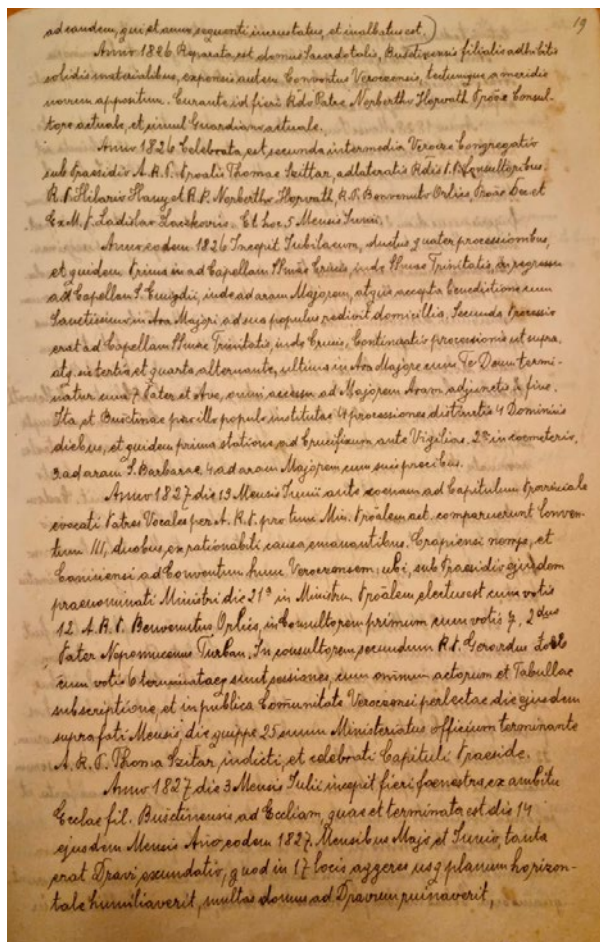 19
ad eandem, qui et anno sequenti incrustatus, et inalbatus est.)
Anno 1826 Reparata est domus Sacerdotalis, Buśetinensis filialis adhibitis
solidis materialibus, expensis autem Conventus Verocensis, tectumque a meridie
novum appositum. Curante id fieri Rdo Patre Norbertho Horvath Proãe Consul-
tore actuale, et simul Guardiano actuale.
Anno 1826 Celebrata est secunda intermedia Verocze Congregatio
sub Praesidio A. R. P. Proalis Thomae Szittar, adlateratis Rdis P. P. Consultoribus.
R. P. Hilario et R. P. Norbertho Horvath, R. P. Benvenuto Orlics, Proãe Du et
Ex M. P. Ladislao. Et hoc 5 Mensis Junii.
Anno eodem 1826 Incepit Jubilaeum, ductus quater processionibus,
et quidem Primus in ad Capellam Smae Crucis, inde Smae Trinitatis, in regressu
ad Capellam S. Emigdii, inde ad aram Majorem, atque accepta benedictione cum
Sanctissimo in Ara Majori, ad sua populus redivit domicillia, Secunda Processio
erat ad Capellam Smae Trinitatis, inde Crucis, Continuatio processionis ut supra.
atq. sic tertia et quarta alternante, ultima in Ara Majore cum Te Deum termi-
natur una 7 Pater et Ave, omni accessu ad Majorem Aram adjunctis in fine.
Ita et Buśetinae pro illo populo institutae 4 processiones distinctis 4 Dominicis
diebus, et quidem prima statione ad Crucifixum ante Vigilias. 2a in coemeterio,
3. ad aram S. Barbarae. 4. ad aram Majorem cum suis precibus.
Anno 1827 die 19 Mensis Junii ante coenam ad Capitulum Provinciale
evocati Patres Vocales per A. R. P. pro tum Min. Proãlem act. comparuerunt Conven-
tum III, duobus, ex rationabili causa emanantibus. Crapiensi nempe, et
Caminensi ad Conventum hunc Veroczensem: ubi, sub Praesidio ejusdem
praenominati Ministri die 21a in Ministrum Proãlem electus est cum votis
12. A. R. P. Benvenutus Orlics, in Consultorem primum cum votis 7, 2dus
Pater Nepomucenus Turban. In consultorem secundum R. P. Gerardus
cum votis 6 terminataeq. sunt sessiones, cum omnium actorum et Tabullae
subscriptione, et in publica Comunitate Verocensi perlectae die ejusdem
suprafati Mensis, die quippe 25 suum Ministeriatus officium terminante
A. R. P. Thoma Szitar, indicti, et celebrati Capituli Praeside.
Anno 1827 die 3 Mensis Julii incepit fieri foenestra, ex ambitu
Ecclae fil. Buśetinensis ad Eccliam, quae et terminata est die 14
ejusdem Mensis Ano, eodem 1827. Mensibus Majo, et Junio, tanta
erat Dravi, exundatio, quod in 17 locis aggeres usq planum horizon-
tale humiliaverit, multas domus ad Dravum ruinaverit,